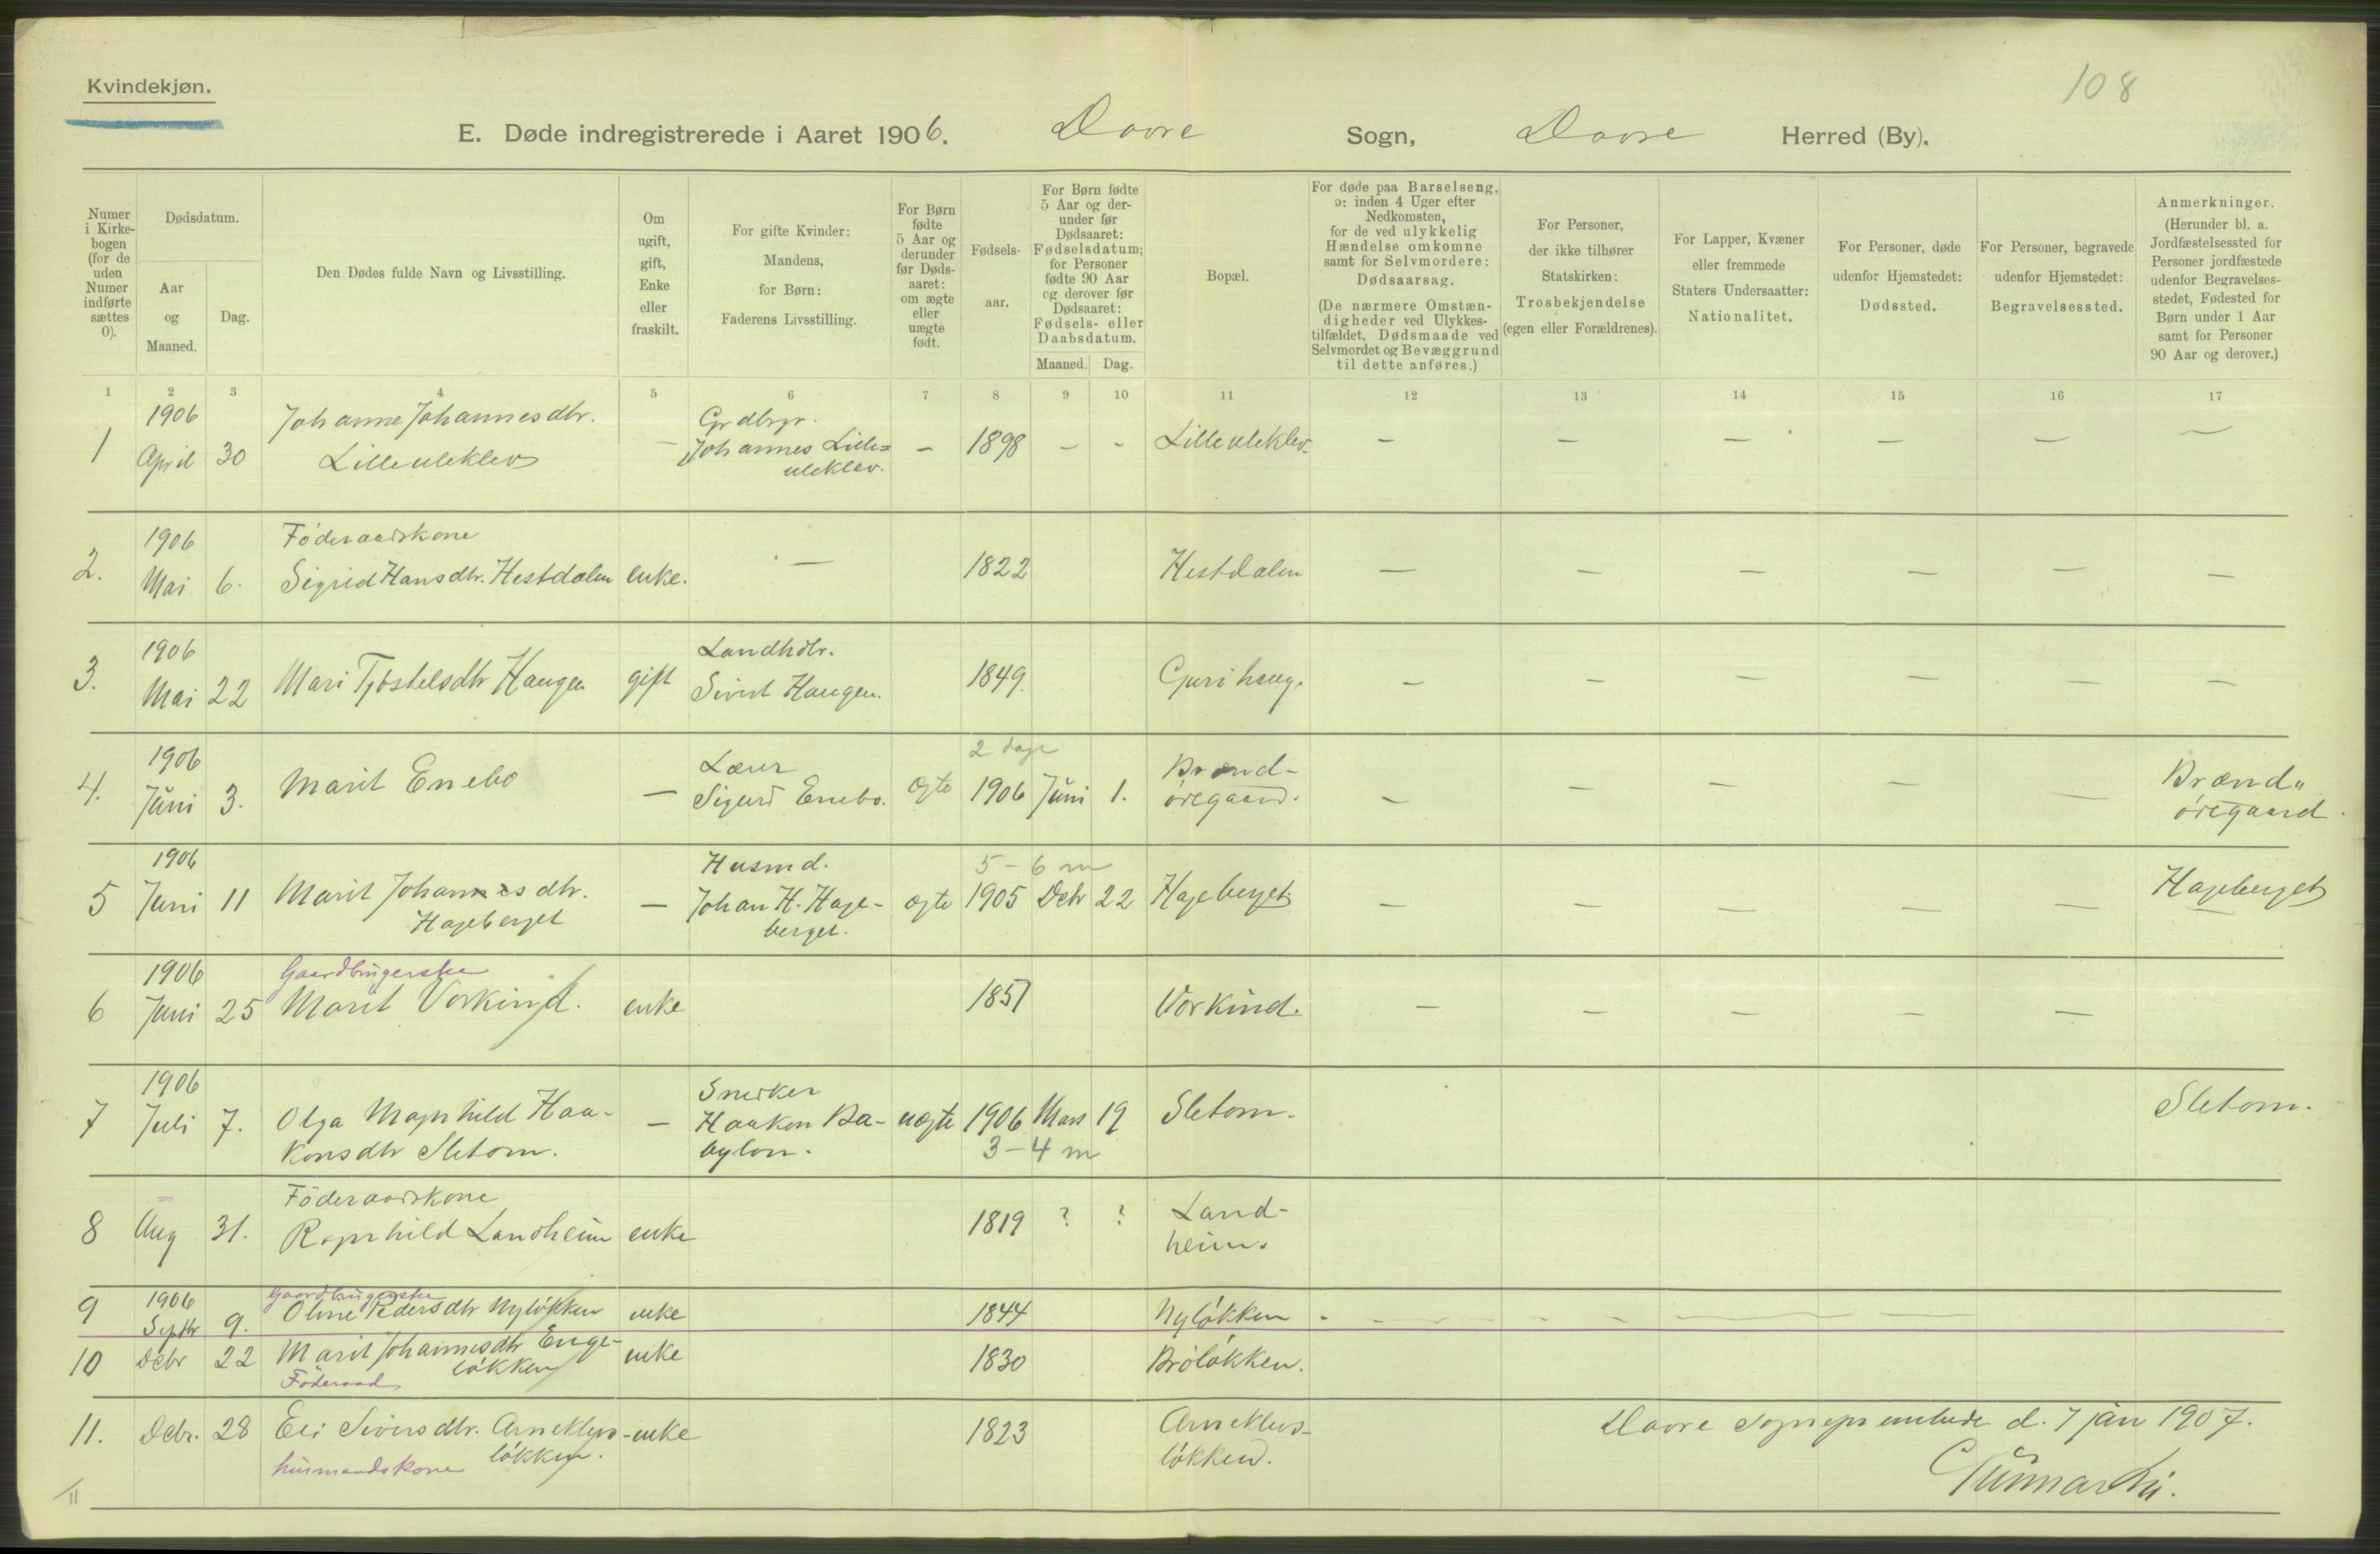 Kvindekjøn.
108
E. Døde indregistrerede i Aaret 1906. Dovre Sogn, Dovre Herred (By).
Numer i Kirke-bogen (for de uden Numer indførte sættes 0).
Dødsdatum.
Aar og Maaned.
Dag.
Den Dødes fulde Navn og Livsstilling.
Om ugift, gift, Enke eller fraskilt.
For gifte Kvinder: Mandens, for Børn: Faderens Livsstilling.
For Børn fødte 5 Aar og derunder før Døds-aaret: om ægte eller uægte født.
Fødsels-aar.
For Børn fødte 5 Aar og der-under før Dødsaaret: Fødselsdatum; for Personer fødte 90 Aar og derover før Dødsaaret: Fødsels- eller Daabsdatum.
Maaned. Dag.
Bopæl.
For døde paa Barselseng, ɔ: inden 4 Uger efter Nedkomsten, for de ved ulykkelig Hændelse omkomne samt for Selvmordere: Dødsaarsag.
(De nærmere Omstæn-digheder ved Ulykkes-tilfældet, Dødsmaade ved Selvmordet og Bevæggrund til dette anføres.)
For Personer, der ikke tilhører Statskirken: Trosbekjendelse (egen eller Forældrenes).
For Lapper, Kvæner eller fremmede Staters Undersaatter: Nationalitet.
For Personer, døde udenfor Hjemstedet: Dødssted.
For Personer, begravede udenfor Hjemstedet: Begravelsessted.
Anmerkninger. (Herunder bl. a. Jordfæstelsessted for Personer jordfæstede udenfor Begravelses-stedet, Fødested for Børn under 1 Aar samt for Personer 90 Aar og derover.)
1 2 3 4 5 6 7 8 9 10 11 12 13 14 15 16 17
1906 Johanne Johannesdtr. Grdbrgr.
1 April 30 Lilleuleklev — Johannes Lille= — 1898 — - Lilleuleklev. — — — — — —
uleklev.
1906 Föderaadskone
2. Mai 6. Sigrid Hansdtr. Hestdalen enke. — 1822 Hestdalen — — — — — —
1906 Landhdlr.
3. Mai 22 Mari Tjöstelsdtr Haugen gift Sivert Haugen. 1849. Gurihaug. — — — — — —
1906 Lærer 2 dage Brænd- Brænd„
4. Juni 3. Marit Enebo — Sigurd Enebo. ægte 1906 Juni 1. øregaard. — — — — — øregaard.
1906 Husmd. 5-6 m
5 Juni 11 Marit Johannesdtr. — Johan H. Hage- ægte 1905 Debr 22 Hageberget — — — — — Hageberget
Hageberget berget.
1906 Gaardbrugerske
6 Juni 25 Marit Vorkind. enke 1851 Vorkind. — — — — —
1906 Snedker
7 Juli 7. Olga Magnhild Haa- — Haakon Ba- uægte 1906 Mars 19 Sletom. Sletom.
konsdtr Sletom. bylon. 3-4 m
Föderaadskone Land-
8 Aug 31. Ragnhild Landheim enke 1819 ? ? heim.
1906 Gaardbrugerske
9 Septbr 9. Oline Pedersdtr Nyløkken enke 1844 Nyløkken - - — — - — — —
10 Debr 22 Marit Johannesdtr Enge- enke 1830 Brøløkken.
løkken
Föderaad
11. Debr. 28 Eli Siversdtr. Arneklevs- enke 1823 Arneklevs-
løkken. løkken.
husmandskone
Dovre sogneprembede d. 7 jan 1907.
11